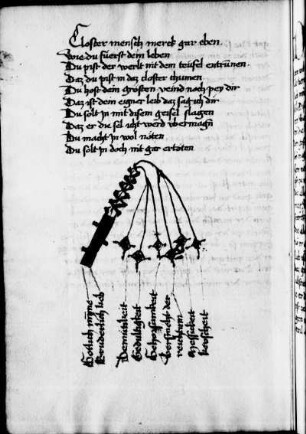 Closter mensch merck gar eben
Wie du füerst dein leben
Du pist der werlt mit dem teüfel entrünen
Daz du pist in daz closter chumen
Du host dein grösten veind noch pey dir
Daz ist dein eigner leib daz sag ich dir
Du solt in mit disem geisel slagen
Daz er die sel icht werd vbermagn
Du macht in wol nöten
Du solt in doch nit gar ertöten
Götlich mynne
Bruderlich lieb
Demütikeit
Gedultigkeit
Gehorsamkeit
Versmecht der
reichtum
Messikeit
keuscheit